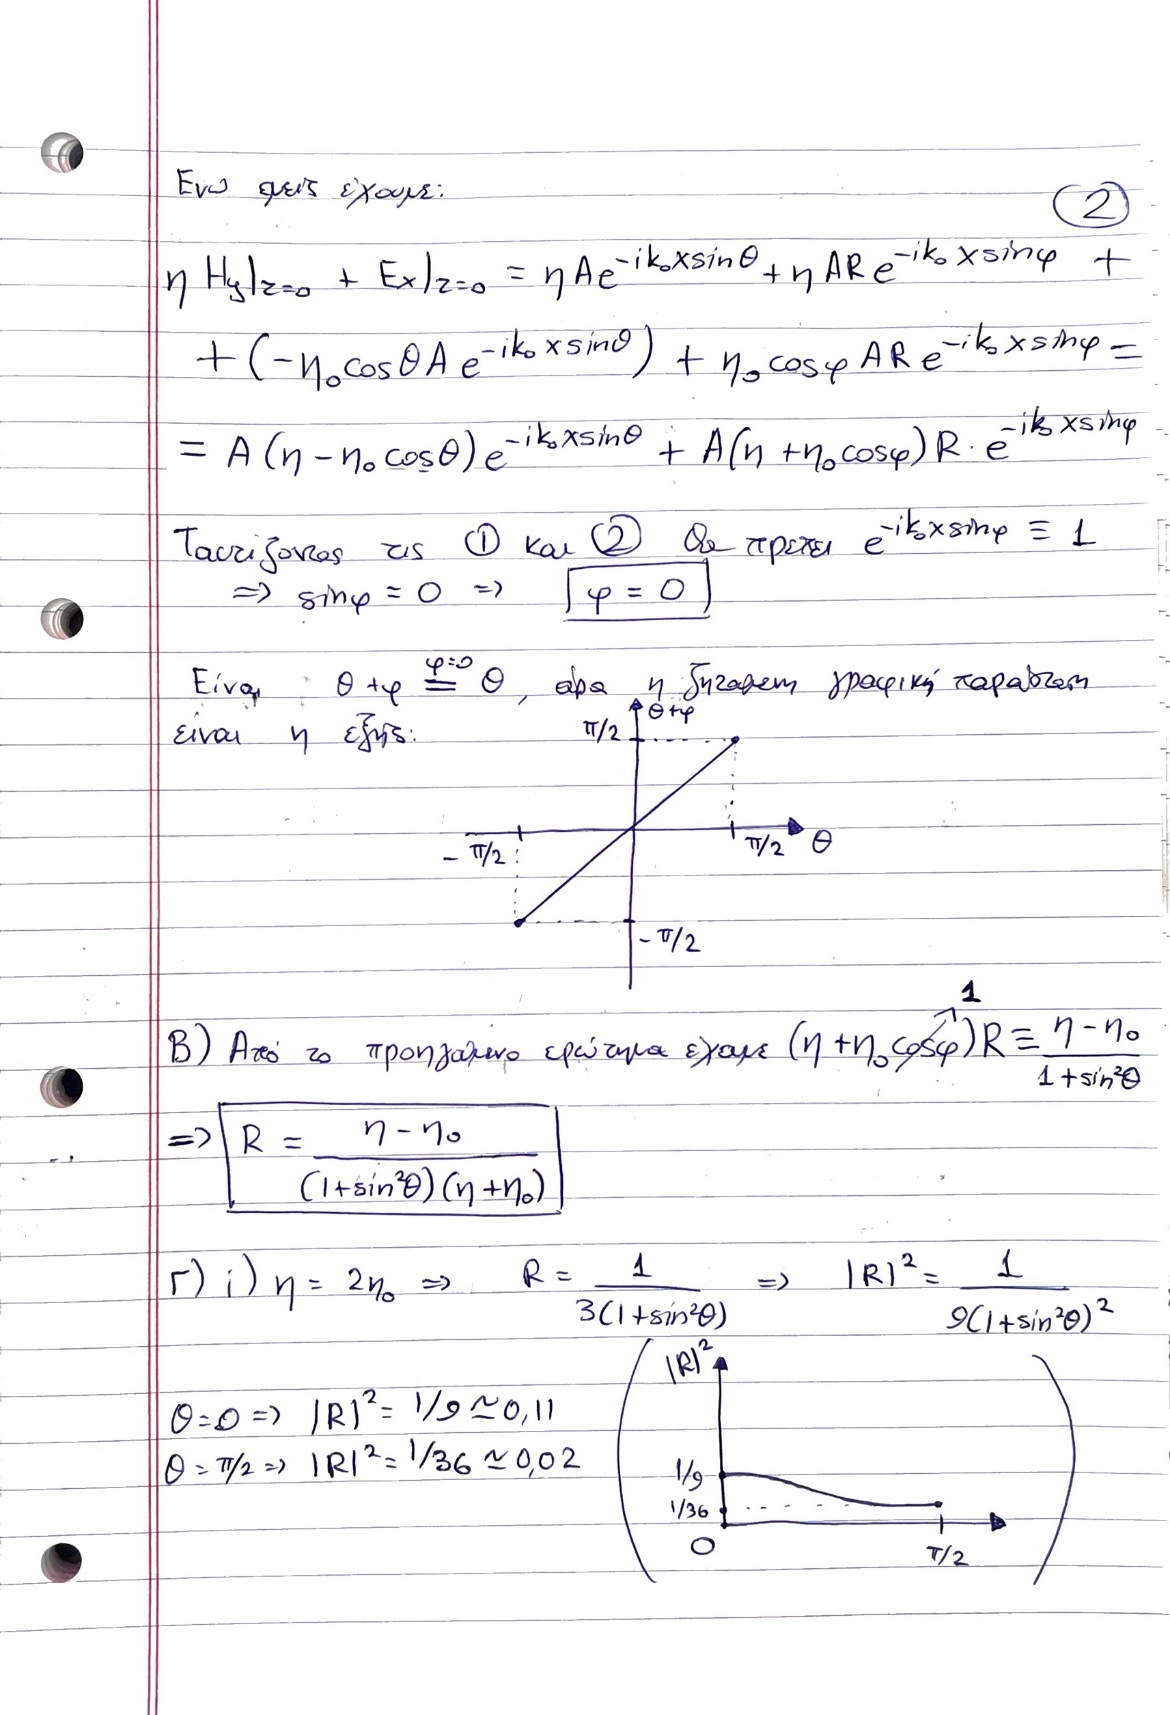 Ενώ εμείς έχουμε:
②
η Hy|z=0 + Ex|z=0 = η A e^{-ik₀xsinθ} + η AR e^{-ik₀xsinφ} +
+ (-η₀cosθ A e^{-ik₀xsinθ}) + η₀cosφ AR e^{-ik₀xsinφ} =
= A(η - η₀cosθ) e^{-ik₀xsinθ} + A(η + η₀cosφ) R · e^{-ik₀xsinφ}
Ταυτίζοντας τις ① και ② θα πρέπει e^{-ik₀xsinφ} ≡ 1
=> sinφ = 0 => φ = 0
Είναι θ+φ =^{φ=0} θ, άρα η ζητούμενη γραφική παράσταση
είναι η εξής:
θ+φ
π/2
-π/2
π/2
θ
-π/2
1
Β) Από το προηγούμενο ερώτημα έχουμε (η + η₀cosφ) R ≡ (η - η₀)/(1 + sin²θ)
=> R = (η - η₀)/((1+sin²θ)(η + η₀))
Γ) i) η = 2η₀ => R = 1/(3(1+sin²θ)) => |R|² = 1/(9(1+sin²θ)²)
|R|²
θ=0 => |R|² = 1/9 ≃ 0,11
θ = π/2 => |R|² = 1/36 ≃ 0,02
1/9
1/36
0
π/2